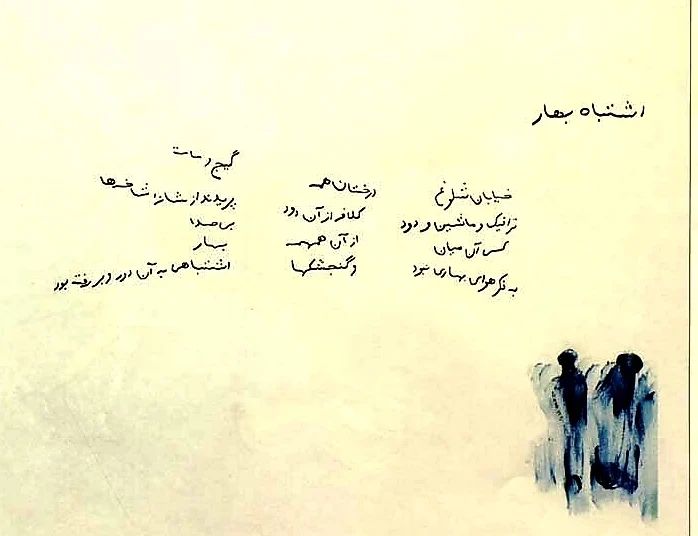 اشتباه بهار
خیابان شلوغ
ترافیک و ماشین و دود
کسی آن میان
به فکر هوای بهاری نبود
درختان همه
کلافه از آن دود
از آن همهمه
و گنجشکها
گیج و مات
پریدند از شانهٔ شاخه‌ها
بی صدا
بهار
اشتباهی به آن دور و بر رفته بود